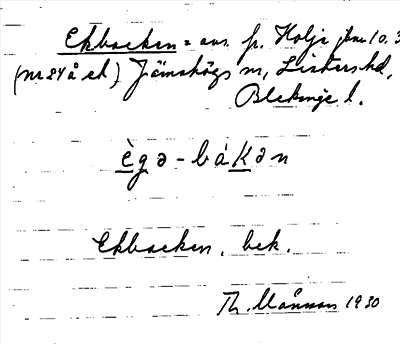 Ekbacken = avs. fr. Holje 10.3
(nr 84 å ek) Jämshögs sn, Listers hd,
Blekinge l.
ègə-bákən
Ekbacken, bek.
Th. Månsson 1930